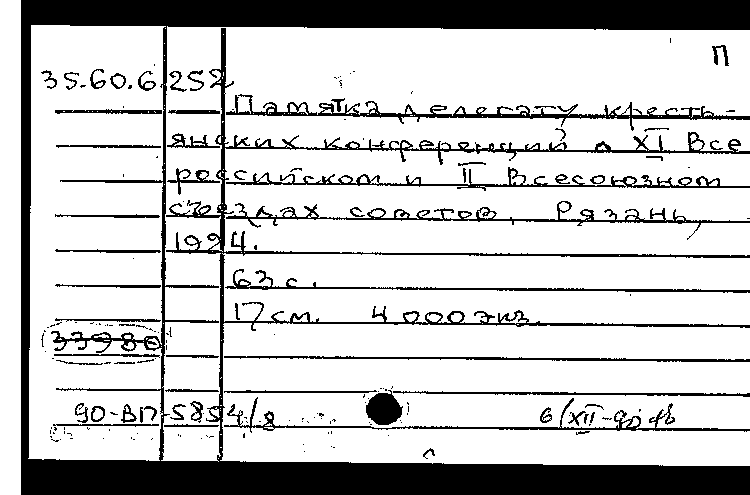 П
35.60.6.252
Памятка делегату кресть-
янских конференций о XI Все
российском и II Всесоюзном
съездах советов. Рязань,
1924.
63 с.
17 см. 4.000 экз.
33980
90-ВП-5854/8
6/XII-90